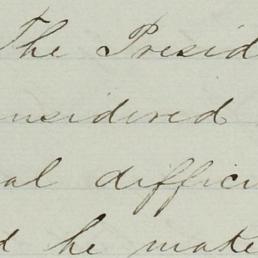 The Presid
nsidered
al difficu
d he make